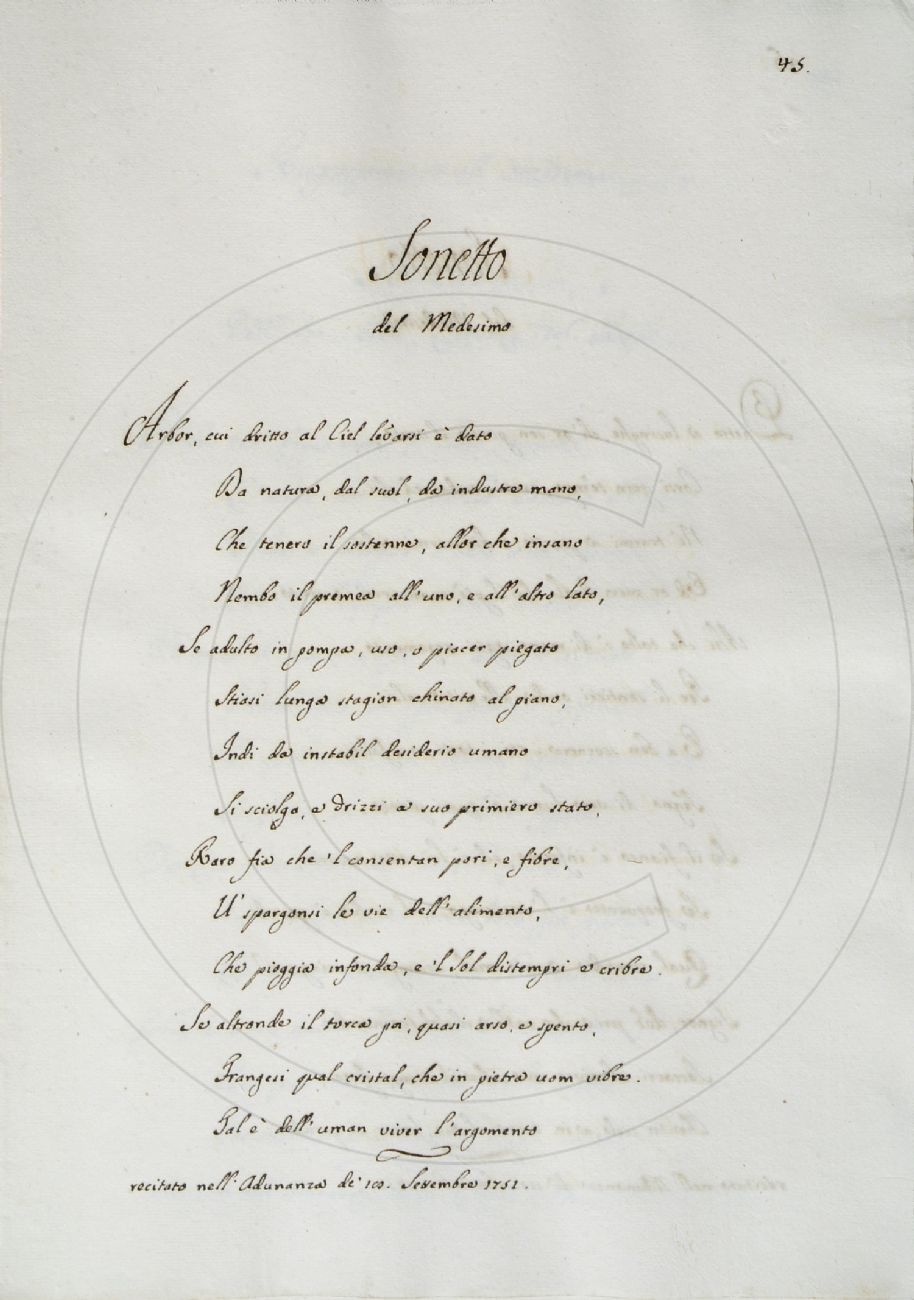 45.
Sonetto
del Medesimo
Arbor, cui dritto al Ciel levarsi è dato
Da natura, dal suol, da industre mano,
Che tenero il sostenne, allor che insano
Nembo il premea all'uno, e all'altro lato,
Se adulto in pompa, uso, o piacer piegato
Stiasi lunga stagion chinato al piano,
Indi da instabil desiderio umano
Si sciolga, e drizzi a suo primiero stato,
Raro fia che 'l consentan pori, e fibre,
U' spargonsi le vie dell'alimento,
Che pioggia infonda, e 'l Sol distempri e cribre.
Se altronde il torca poi, quasi arso, e spento,
Frangesi qual cristal, che in pietra uom vibre.
Tal è dell'uman viver l'argomento
recitato nell'Adunanza de' 10. Settembre 1751.